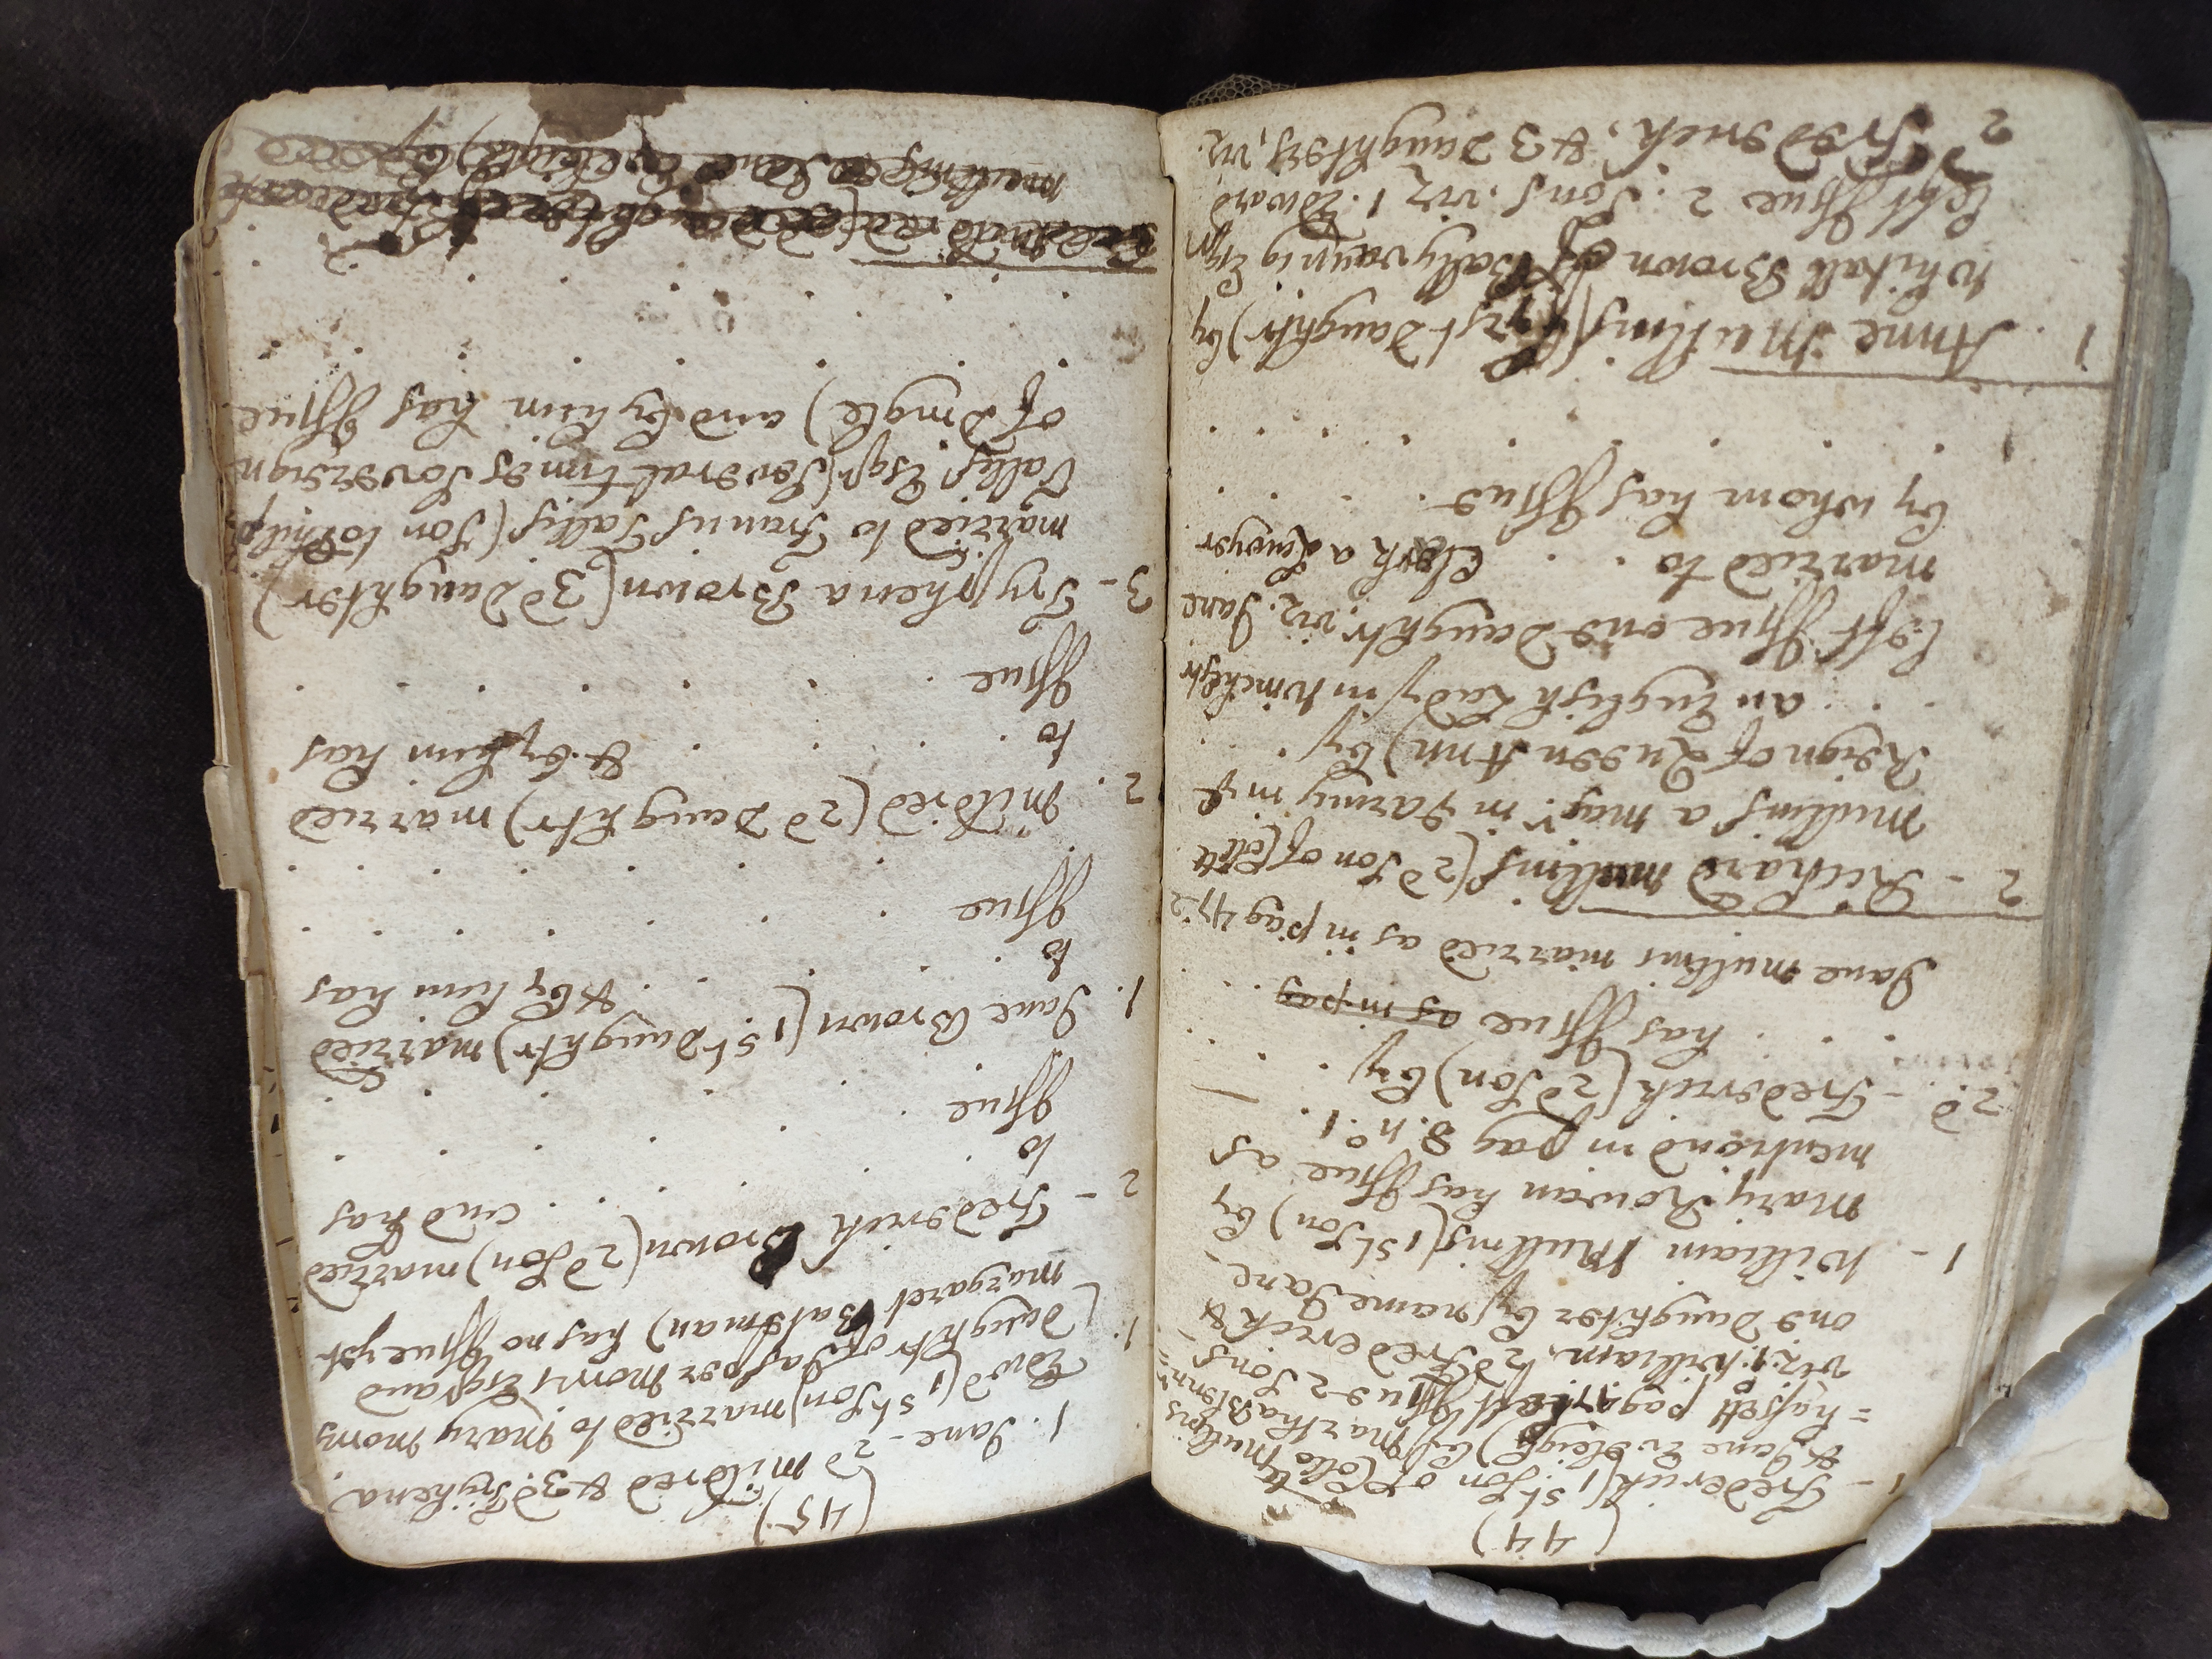 (44)
1 - Frederick (1st Son of Collo Mullins
& Jane Eveleigh) by Martha Blenner=
=hassett pag 47 left Issue 2 Sons
viz. 1. William, 2d Frederick &
one Daughter by name Jane -
1 - William Mullins (1st Son) by
Mary Rowan has Issue as
mentiond in pag 8. no. 1.
2d. - Frederick (2d Son) by . . .
. . . has Issue as in pag . .
Jane Mullins married as in pag 47 2
2 - Richard Mullins (2d Son of Collo
Mullins a majr. in Army in ye
Reign of Queen Ann) by . . .
. . . an English Lady in Winchestr
left Issue one Daughtr, viz. Jane
married to . . Clerk a Lawyer
by whom has Issue . . . .
1. Anne Mullins (first Daughtr) by
Whitall Brown of Ballyvaunig Esqr.
left Issue 2 Sons. viz 1. Edward
2 Frederick, & 3 Daughters, viz.
(45)
1. Jane - 2d Mildred & 3d. Tryhena
1. Edwd (1st Son) married to Mary Morris
(Daughtr of Jasper Morris Esqr and
Margaret Bateman) has no Issue yet
2 - Frederick Brown (2d Son) married
to . . . . . . and has
Issue . . . . . .
1. Jane Brown (1st Daughtr) married
to . . . . & by him has
Issue . . . . . .
2. Mildred (2d Daughtr) married
to . . . . & by him has
Issue . . . . . .
3 - Tryphena Brown (3d Daughter)
married to Francis Lallis (Son to Philip
Lallis Esqr (several times Sovereign
of Dingle) and by him has Issue
. . . . . . . .
Mullins & Jane Eveleigh) by